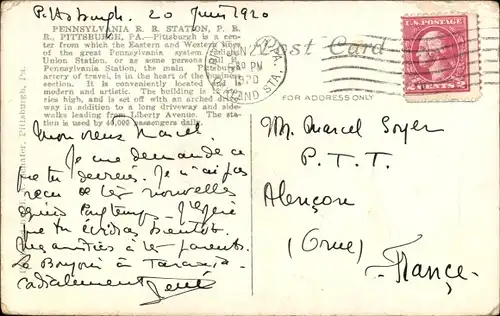 Pittsburgh. 20 Juin 1920
PENNSYLVANIA R. R. STATION, P. R.
R., PITTSBURGH, PA.—Pittsburgh is a cen-
ter from which the Eastern and Western lines
of the great Pennsylvania system radiate.
Union Station, or as some persons call it
Pennsylvania Station, the main Pittsburgh
artery of travel, is in the heart of the business
section. It is conveniently located and is
modern and artistic. The building is
stories high, and is set off with an arched drive-
way in addition to a long driveway and side-
walks leading from Liberty Avenue. The sta-
tion is used by 40,000 passengers daily.
Pittsburgh, Pa.
Post Card
FOR ADDRESS ONLY
PA.
JUN
PM
1920
GRAND STA.
U.S. POSTAGE
2 CENTS 2
Mon vieux Marcel.
Je me demande ce
que tu deviens. Je n'ai pas
reçu de tes nouvelles
depuis longtemps. J'espère
que tu écriras bientôt.
Mes amitiés à tes parents.
Le Bonjour à
cordialement René
M. Marcel Soyer
P. T. T.
Alençon
(Orne)
- France -